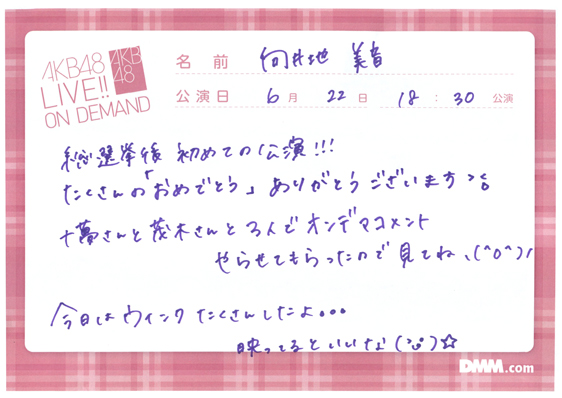 AKB48
LIVE!!
ON DEMAND
AKB
48
名前 向井地 美音
公演日 6月 22日 18:30 公演
総選挙後 初めての公演!!!
たくさんの「おめでとう」ありがとうございます
十夢さんと茂木さんと3人でオンデマコメント
やらせてもらったので見てね、(^o^)/
今日はウィンクたくさんしたよ...
映ってるといいな(
)☆
DMM.com